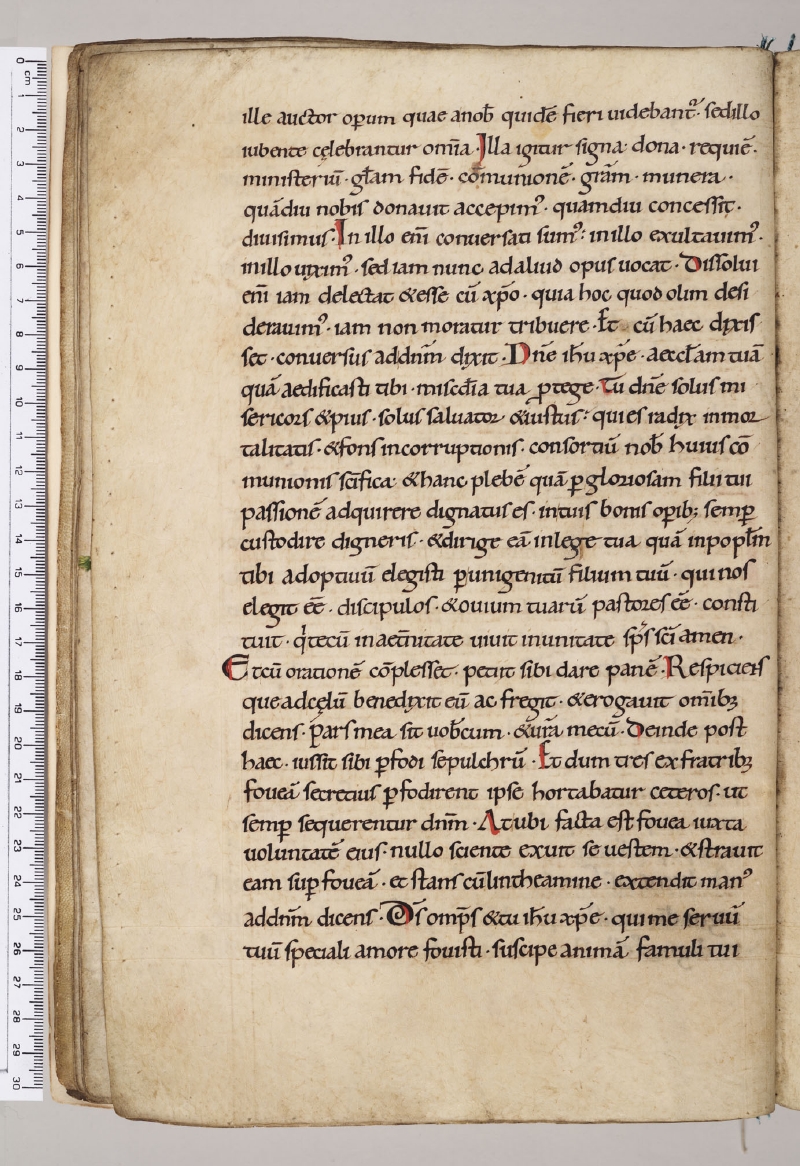 ille auctor operum quae anob̄ quidē fieri uidebant᷑· sedillo
iubente cęlebrantur om̄ia· Illa igitur signa· dona· requiē·
ministeriū· gl̄am fidē· cōmunionē· gr̄am· munera·
quādiu nobis donauit accepim᷒· quamdiu concessit·
diuisimus· In illo eni̅ conuersati sum᷒· inillo exultauim᷒·
inillo uixim᷒· sed iam nunc adaliud opus uocat· Dissolui
eni̅ iam delectat &esse cū xp̄o· quia hoc quod olim desi
derauim᷒· iam non moratur tribuere· Et cū haec dixis
set· conuersus addn̄m dixit· Dn̄e ih̄u xp̄e· aeccl̄am tuā
quā aedificasti tibi· misc̄dia tua ꝓtege· Tu dn̄e solus mi
sericors &pius· solus saluator &iustus· qui es radix inmor
talitatis· &fons incorruptionis· consortiū nob̄ huius cō
munionis sc̄ifica· &hanc plebē quā ꝑ gloriosam filii tui
passionē adquirere dignatus es· intuis bonis oꝑib; semꝑ
custodire digneris· &dirige eā inlege tua quā inpopl̄m
tibi adoptiuū elegisti ꝑunigenitū filium tuū· qui nos
elegit ee̅· discipulos· &ouium tuarū pastores ee̅· consti
tuit· q̍tecū inaet̄nitate uiuit inunitate sp̄s sc̄i amen·
Etcū orationē cōplesset· petiit sibi dare panē· Respiciens
queadcęlū benedixit eū ac fregit· &erogauit om̄ibꝫ
dicens· Pars mea sit uob̄cum· &ur̄a mecū· Deinde post
haec· iussit sibi ꝑfodi sepulchrū· Et dum tres ex fratribꝫ
foueā secretius ꝑfodirent ipse hortabatur ceteros· ut
semꝑ sequerentur dn̄m· At ubi facta est fouea iuxta
uoluntatē eius· nullo sciente exuit se uestem· &strauit
eam suꝑ foueā· et stans cū lintheamine· extendit man᷒
addn̄m dicens· Ds̄ omp̄s &tu ih̄u xp̄e· qui me seruū
tuū speciali amore fouisti· suscipe animā famuli tui